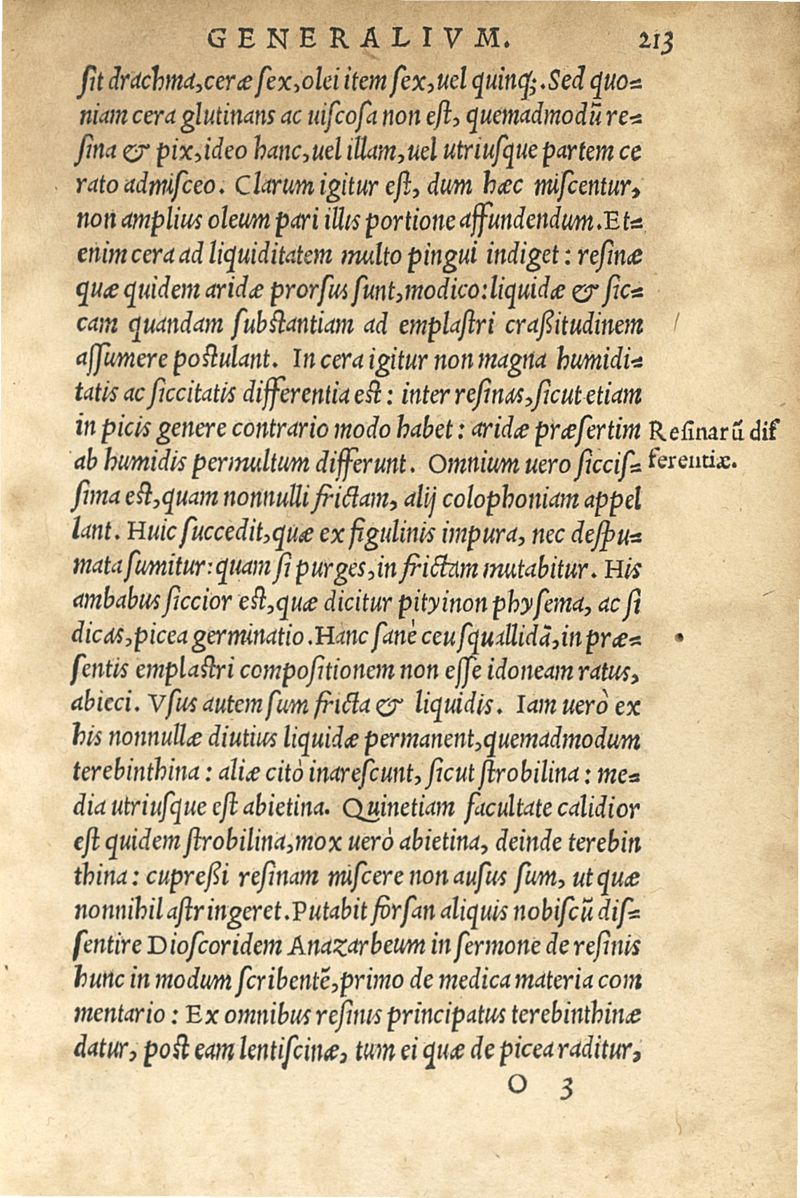 GENERALIVM. 213
sit drachma,ceræ sex,olei item sex,uel quinq;.Sed quo=
niam cera glutinans ac uiscosa non est, quemadmodũ re=
sina & pix,ideo hanc,uel illam,uel utriusque partem ce
rato admisceo. Clarum igitur est, dum hæc miscentur,
non amplius oleum pari illis portione affundendum.Et=
enim cera ad liquiditatem multo pingui indiget: resinæ
quæ quidem aridæ prorsus sunt,modico:liquidæ & sic=
cam quandam substantiam ad emplastri craßitudinem
assumere postulant. In cera igitur non magna humidi=
tatis ac siccitatis differentia est: inter resinas,sicut etiam
in picis genere contrario modo habet: aridæ præsertim
Resinarũ dif
ab humidis permultum differunt. Omnium uero siccis=
ferentiæ.
sima est,quam nonnulli frictam, alij colophoniam appel
lant. Huic succedit,quæ ex figulinis impura, nec despu=
mata sumitur:quam si purges,in frictam mutabitur. His
ambabus siccior est,quæ dicitur pityinon physema, ac si
dicas,picea germinatio.Hanc sanè ceu squallidã,in præ=
sentis emplastri compositionem non esse idoneam ratus,
abieci. Vsus autem sum fricta & liquidis. Iam uerò ex
his nonnullæ diutius liquidæ permanent,quemadmodum
terebinthina: aliæ citò inarescunt, sicut strobilina: me=
dia utriusque est abietina. Quinetiam facultate calidior
est quidem strobilina,mox uerò abietina, deinde terebin
thina: cupreßi resinam miscere non ausus sum, ut quæ
nonnihil astringeret.Putabit forsan aliquis nobiscũ dis=
sentire Dioscoridem Anazarbeum in sermone de resinis
hunc in modum scribentẽ,primo de medica materia com
mentario: Ex omnibus resinis principatus terebinthinæ
datur, post eam lentiscinæ, tum ei quæ de picea raditur,
O 3